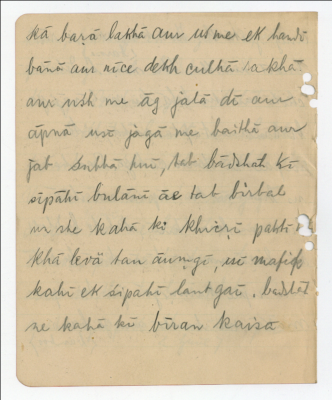 kā baṛā lakhā aur us me ek handī
bānā aur nīce dekh culhā rakhā
aur ush me āg jalā dī aur
āpnā usī jagā me baithā aur
jab subhā huī, tab bādshah kī
sipāhī bulānī āe tab birbal
ur she kahā ki khicṛī paktī
khā levā tau āungī, usī mafik
kahī ek sipahī laut gaī. badshah
ne kahā kī bīran kaisa